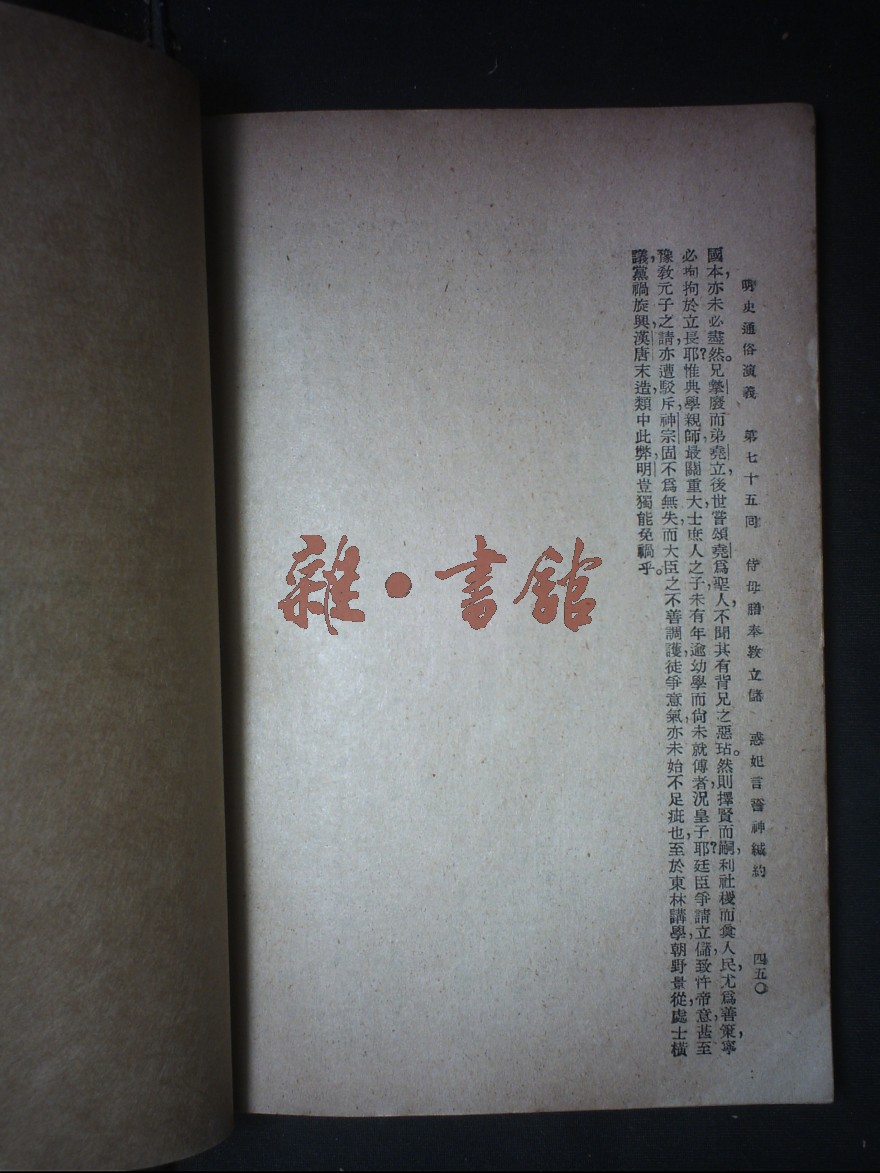 明史通俗演義　第七十五回　侍母膳奉教立儲　惑妃言誓神緘約　四五〇
國本，亦未必盡然。兄摯廢而弟堯立，後世嘗頌堯爲聖人，不聞其有背兄之惡玷。然則擇賢而嗣，利社稷而奠人民，尤爲善策，寧
必拘拘於立長耶？惟典學親師，最關重大，士庶人之子，未有年逾幼學而尙未就傅者，況皇子耶？廷臣爭請立儲，致忤帝意，甚至
豫教元子之請，亦遭駁斥，神宗固不爲無失，而大臣之不善調護，徒爭意氣，亦未始不足疵也。至於東林講學，朝野景從，處士橫
議，黨禍旋興，漢唐末造，類中此弊，明豈獨能免禍乎。
雜·書館